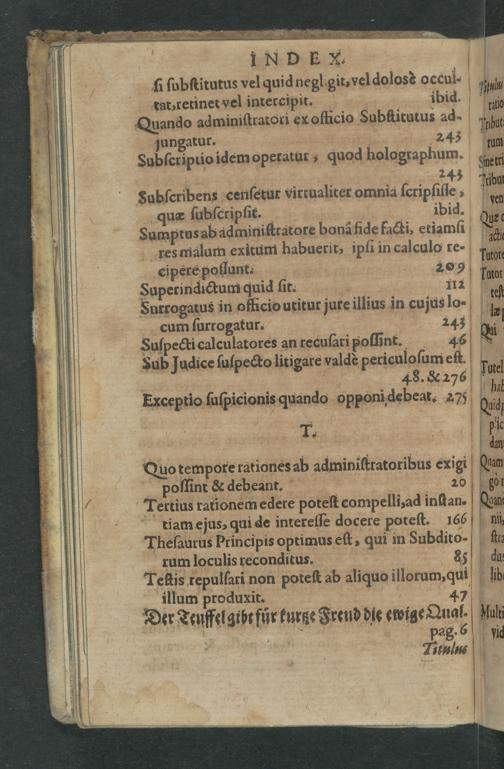 INDEX.
si substitutus vel quid negligit, vel dolosè occul-
tat, retinet vel intercipit. ibid.
Quando administratori ex officio Substitutus ad-
jungatur. 243
Subscriptio idem operatur, quod holographum.
243
Subscribens censetur virtualiter omnia scripsisse,
quæ subscripsit. ibid.
Sumptus ab administratore bonâ fide facti, etiamsi
res malum exitum habuerit, ipsi in calculo re-
cipere possunt. 209
Superindictum quid sit. 112
Surrogatus in officio utitur jure illius in cujus lo-
cum surrogatur. 243
Suspecti calculatores an recusari possint. 46
Sub Judice suspecto litigare valdè periculosum est.
48. & 276
Exceptio suspicionis quando opponi debeat. 275
T.
Quo tempore rationes ab administratoribus exigi
possint & debeant. 20
Tertius rationem edere potest compelli, ad instan-
tiam ejus, qui de interesse docere potest. 166
Thesaurus Principis optimus est, qui in Subdito-
rum loculis reconditus. 85
Testis repulsari non potest ab aliquo illorum, qui
illum produxit. 47
Der Teuffel gibt für kurtze Freud die ewige Qual.
pag. 6
Titulus